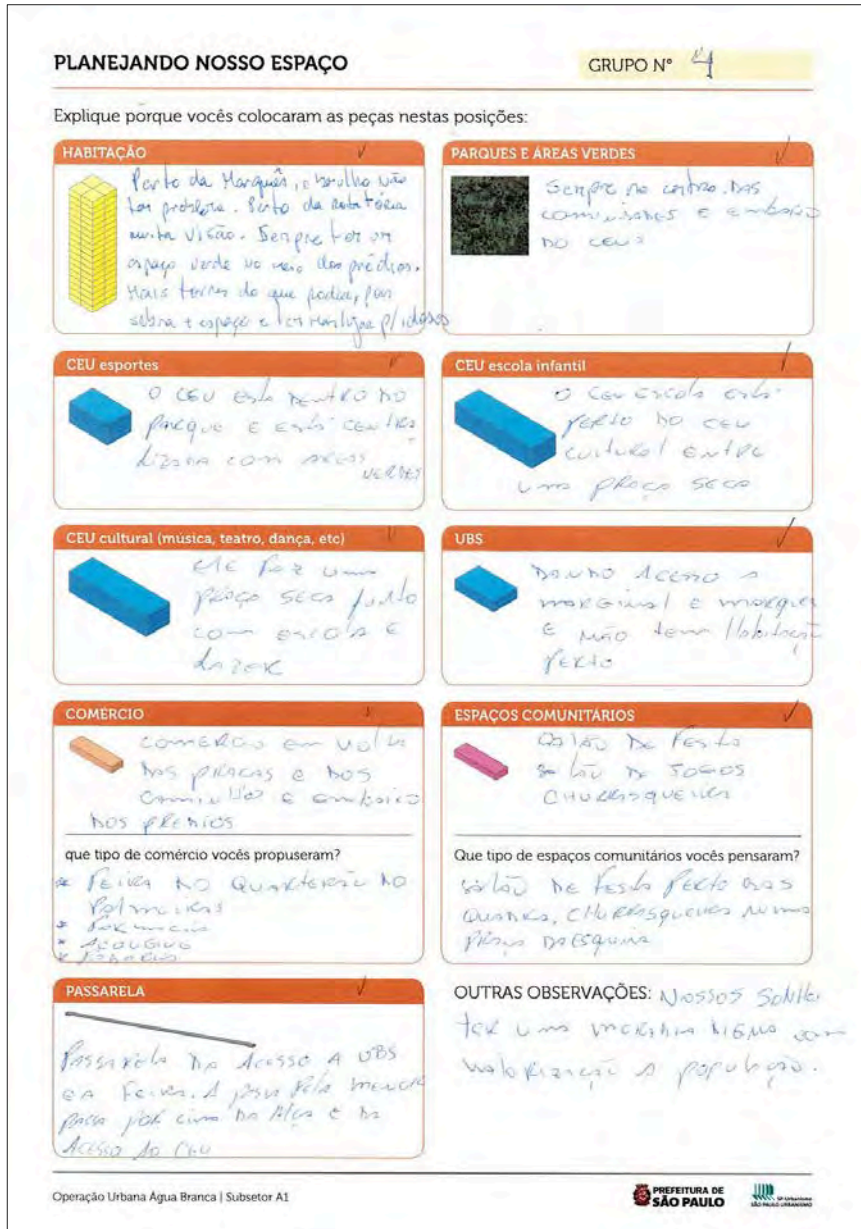 PLANEJANDO NOSSO ESPAÇO
GRUPO N° 4
Explique porque vocês colocaram as peças nestas posições:
HABITAÇÃO
Perto da Marquês, o barulho não
ter problema. Perto da rotatória
muita visão. Sempre ter um
espaço verde no meio dos prédios.
Mais torres do que podia, para
sobra + espaço e p/ idosos
PARQUES E ÁREAS VERDES
Sempre no centro das
comunidades e embaixo
do CEUs
CEU esportes
O CEU está dentro do
parque e está centra
lizada com areas
verdes
CEU escola infantil
O CEU escola está
perto do CEU
cultural entre
uma praça seca
CEU cultural (música, teatro, dança, etc)
ele faz uma
praça seca junto
com escola e
lazer
UBS
Dando acesso a
marginal e marques
e não tem Habitação
perto
COMÉRCIO
comercio em volta
das praças e dos
caminhos e embaixo
dos predios
que tipo de comércio vocês propuseram?
* Feira no quarterão do
Palmeiras
* Farmacia
* Açougue
* Padaria
ESPAÇOS COMUNITÁRIOS
Salão de Festa
Salão de Jogos
Churrasqueira
Que tipo de espaços comunitários vocês pensaram?
Salão de Festa perto das
quadra, churrasqueira numa
praça da esquina
PASSARELA
Passarela da acesso a UBS
e a Feira. A
passa por cima da alça e da
acesso ao CEU
OUTRAS OBSERVAÇÕES: Nossos sonho
ter uma moradia digna com
valorização a população.
Operação Urbana Água Branca | Subsetor A1
PREFEITURA DE
SÃO PAULO
SP Urbanismo
SÃO PAULO URBANISMO